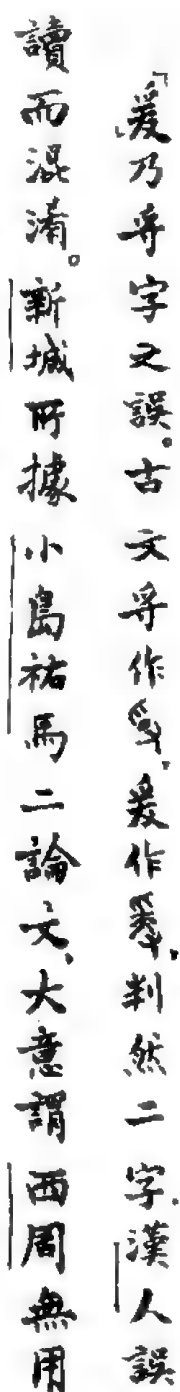 「爰乃寽字之誤。古文寽作，爰作，判然二字，漢人誤
讀而混淆。新城所據小島祐馬二論文、大意謂西周無用